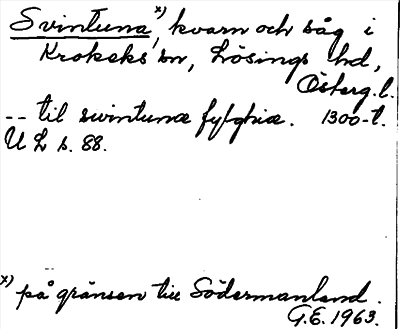 Svintuna x), kvarn och såg i
Krokeks sn, Lösings hd,
Österg. l.
-- til swintunæ fylghiæ. 1300-t.
U L s. 88.
x) på gränsen till Södermanland.
G.E. 1963.